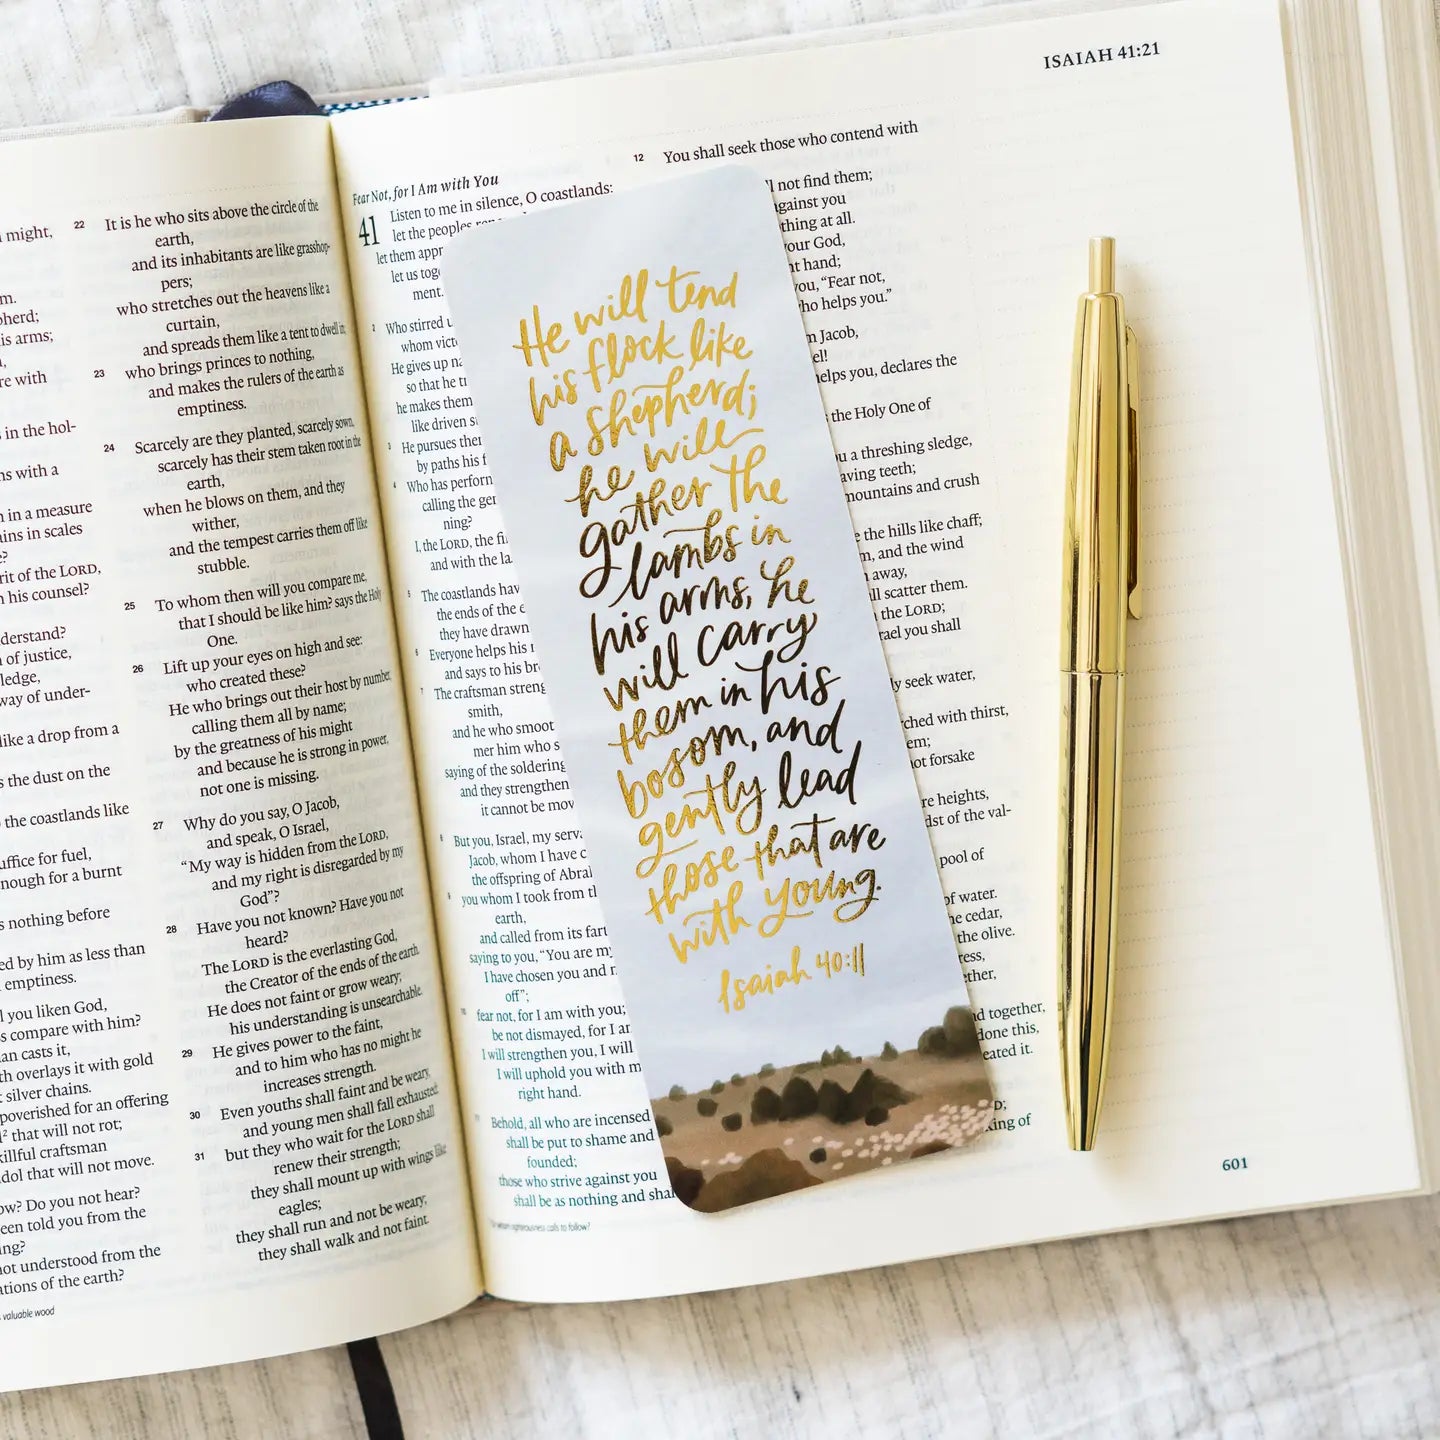 might,
is arms;
with
in the
with a
in a measure
in scales
of the LORD,
his counsel?
of justice,
way of under-
like a drop from a
the dust on the
the coastlands like
for fuel,
enough for a burnt
nothing before
by him as less than
emptiness.
you liken God,
compare with him?
casts it,
overlays it with gold
silver chains.
for an offering
that will not rot;
craftsman
idol that will not move.
Do you not hear?
told you from the
not understood from the
of the earth?
valuable wood
22 It is he who sits above the circle of the
earth,
and its inhabitants are like grasshop-
pers;
who stretches out the heavens like a
curtain,
and spreads them like a tent to dwell in;
23 who brings princes to nothing,
and makes the rulers of the earth as
emptiness.
24 Scarcely are they planted, scarcely sown,
scarcely has their stem taken root in the
earth,
when he blows on them, and they
wither,
and the tempest carries them off like
stubble.
25 To whom then will you compare me,
that I should be like him? says the Holy
One.
26 Lift up your eyes on high and see:
who created these?
He who brings out their host by number,
calling them all by name;
by the greatness of his might
and because he is strong in power,
not one is missing.
27 Why do you say, O Jacob,
and speak, O Israel,
“My way is hidden from the LORD,
and my right is disregarded by my
God”?
28 Have you not known? Have you not
heard?
The LORD is the everlasting God,
the Creator of the ends of the earth.
He does not faint or grow weary;
his understanding is unsearchable.
29 He gives power to the faint,
and to him who has no might he
increases strength.
30 Even youths shall faint and be weary,
and young men shall fall exhausted;
31 but they who wait for the LORD shall
renew their strength;
they shall mount up with wings like
eagles;
they shall run and not be weary;
they shall walk and not faint.
ISAIAH 41:21
Fear Not, for I Am with You
41 Listen to me in silence, O coastlands;
let the peoples
let them
let us
ment.
2 Who stirred
whom
He gives up
so that he
he makes them
like driven
3 He pursues
by paths his
4 Who has
calling the
ning?
I, the LORD, the
and with the
5 The coastlands
the ends of the
they have drawn
6 Everyone helps his
and says to his
7 The craftsman
smith,
and he who
mer him who
saying of the soldering
and they strengthen
it cannot be
8 But you, Israel, my
Jacob, whom I have
the offspring of
9 you whom I took from
earth,
and called from its
saying to you, “You are my
I have chosen you and
off”;
10 fear not, for I am with you;
be not dismayed, for I
I will strengthen you, I will
I will uphold you with
right hand.
11 Behold, all who are incensed
shall be put to shame and
founded;
those who strive against you
shall be as nothing and
righteousness calls to follow?
He will tend
his flock like
a shepherd;
he will
gather the
lambs in
his arms, he
will carry
them in his
bosom, and
gently lead
those that are
with young.
Isaiah 40:11
12 You shall seek those who contend with
not find them;
against you
at all.
your God,
hand;
“Fear not,
helps you.”
Jacob,
you, declares the
the Holy One of
a threshing sledge,
teeth;
mountains and crush
the hills like chaff;
and the wind
away,
scatter them.
the LORD;
you shall
seek water,
with thirst,
not forsake
heights,
of the val-
pool of
of water.
cedar,
the olive.
together,
done this,
it.
of
601